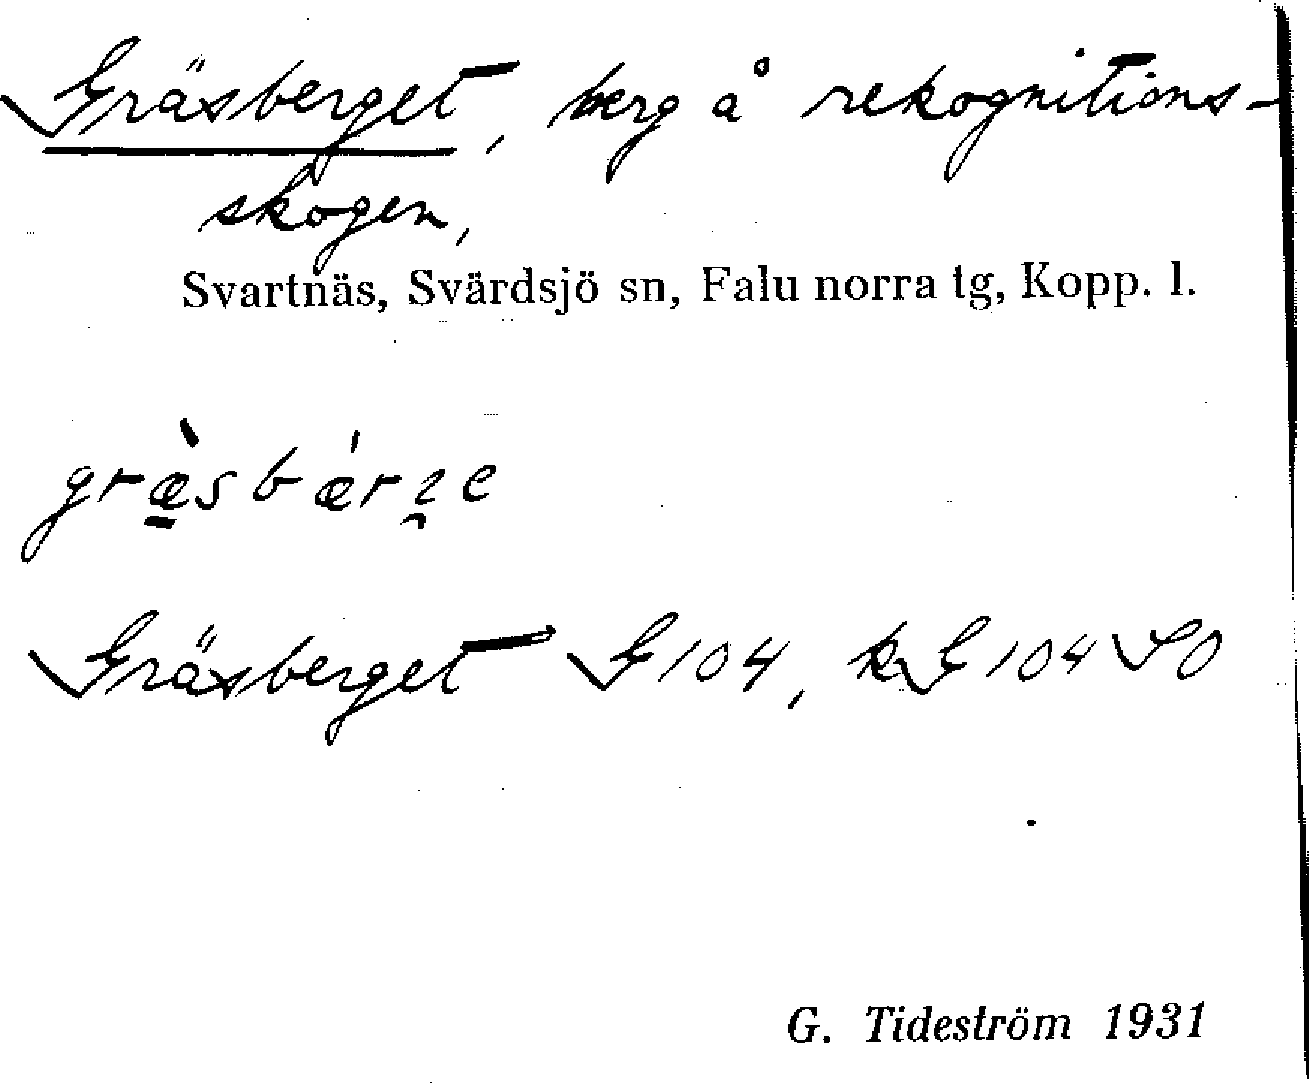 Gräsberget, berg å rekognitions-
skogen,
Svartnäs, Svärdsjö sn, Falu norra tg, Kopp. l.
Gräsberget G 104, kG 104 SO
G. Tideström 1931